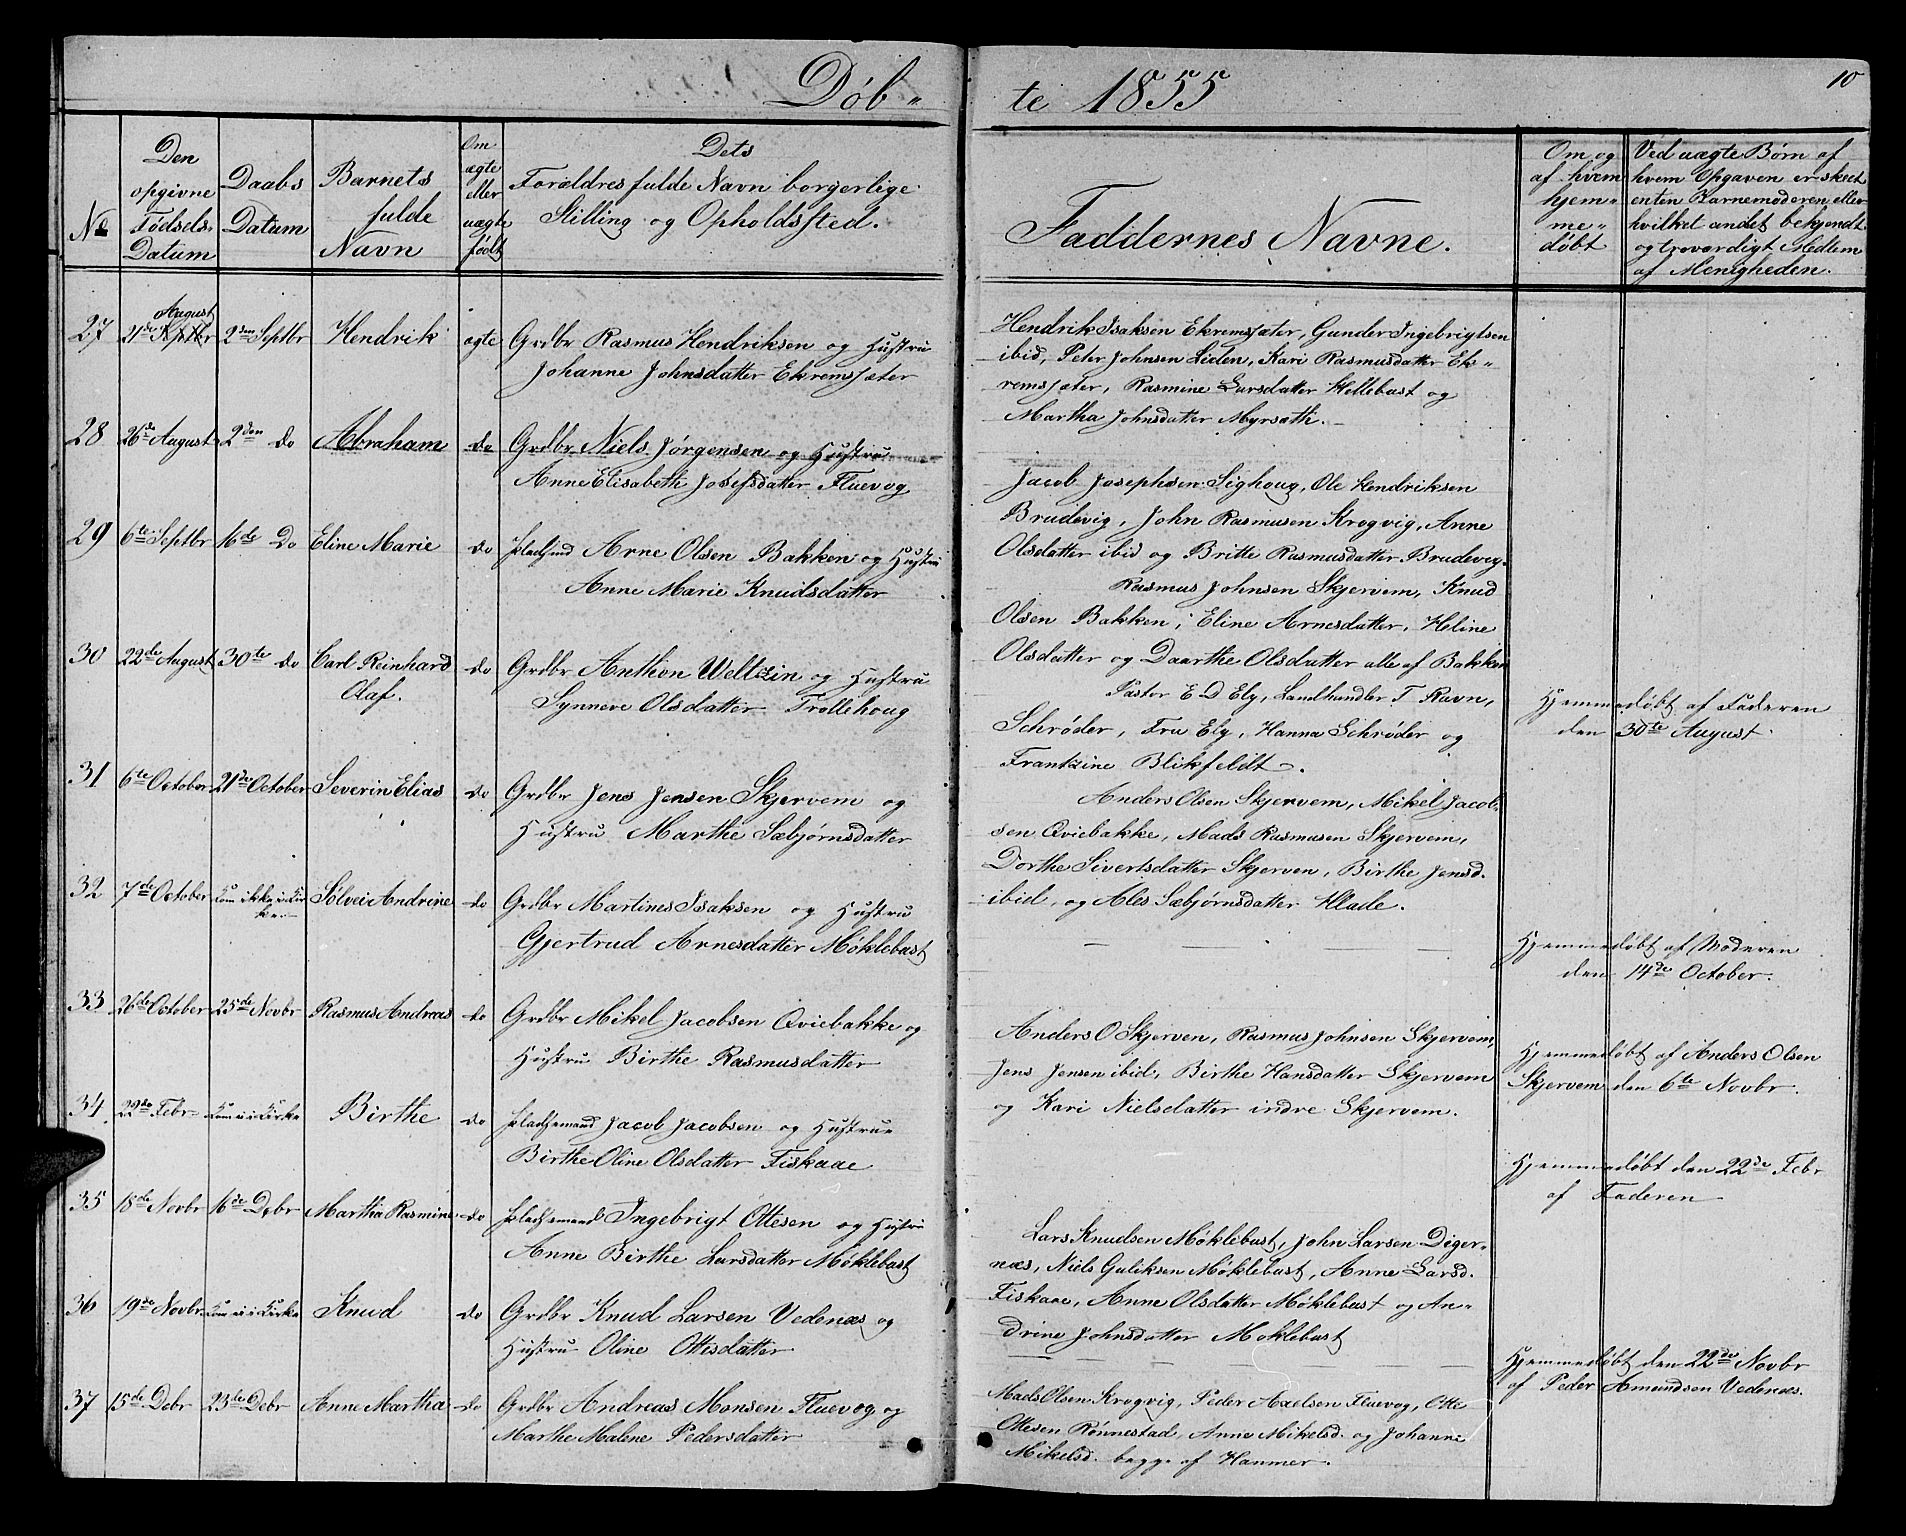 Døb-
te 1855
10
No
Den
opgivne
Fødsels-
Datum
Daabs
Datum
Barnets
fulde
Navn
Om
ægte
eller
uægte
født
Dets
Forældres fulde Navn borgerlige
Stilling og Opholdssted.
Faddernes Navne.
Om og
af hvem
hjem-
me-
døbt
Ved uægte Børn af
hvem Opgaven er skeet
enten Barnemoderen, eller
hvilket andet bekjendt
og troværdigt Medlem
af Menigheden.
27 21de August 2den Septbr Hendrik ægte Grdbr Rasmus Hendriksen og Hustru
Johanne Johnsdatter Ekremsæter
Hendrik Isaksen Ekremsæter, Gunder Ingebrigtsen
ibid, Peter Johnsen Liden, Kari Rasmusdatter Ek-
remsæter, Rasmine Larsdatter Hellebust og
Martha Johnsdatter Myrsæth.
28 26de August 2den do Abraham do Grdbr Niels Jørgensen og Hustru
Anne Elisabeth Josefsdatter Fluevog
Jacob Josephsen Sighoug, Ole Hendriksen
Brudevig, John Rasmusen Krogvig, Anne
Olsdatter ibid og Britte Rasmusdatter Brudevig.
29 6te Septbr 16de Do Eline Marie do Pladsmd Arne Olsen Bakken og Hustru
Anne Marie Knudsdatter
Rasmus Johnsen Skjervem, Knud
Olsen Bakken, Eline Arnesdatter, Heline
Olsdatter og Daarthe Olsdatter alle af Bakken
30 22de August 30te do Carl Reinhard do Grdbr Anthon Weltzin og Hustru
Olaf. Synneve Olsdatter Trollehoug
Pastor E D Ely, Landhandler T Ravn,
Schrøder, Fru Ely, Hanna Schrøder og
Frantzine Blikfeldt.
Hjemmedøbt af Faderen
den 30te August
31 6te October 21de October Severin Elias do Grdbr Jens Jensen Skjervem og
Hustru Marthe Sæbjørnsdatter
Anders Olsen Skjervem, Mikel Jacob-
sen Qviebakke, Mads Rasmusen Skjervem,
Dorthe Sivertsdatter Skjerven, Birthe Jensd.
ibid, og Ales Sæbjørnsdatter Hlade.
32 7de October Kom ikke i Kir- Sølvei Andrine do Grdbr Martines Isaksen og Hustru
ken Gjertrud Arnesdatter Møklebust
Hjemmedøbt af Moderen
den 14de October.
33 26de October 25de Novbr Rasmus Andreas do Grdbr Mikel Jacobsen Qviebakke og
Hustru Birthe Rasmusdatter
Anders O Skjerven, Rasmus Johnsen Skjervem,
Jens Jensen ibid, Birthe Hansdatter Skjervem
og Kari Nielsdatter indre Skjervem.
Hjemmedøbt af Anders Olsen
Skjervem den 6te Novbr.
34 22de Febr Kom ei i Kirke Birthe do Pladsemand Jacob Jacobsen og Hustrue
Birthe Oline Olsdatter Fiskaae
Hjemmedøbt den 22de Febr
af Faderen
35 18de Novbr 16de Debr Martha Rasmine do Pladsemand Ingebrigt Ottesen og Hustru
Anne Birthe Larsdatter Møklebust
Lars Knudsen Møklebust, John Larsen Diger-
næs, Niels Guliksen Møklebust, Anne Larsd.
Fiskaae, Anne Olsdatter Møklebust og An-
drine Johnsdatter Moklebust
36 19de Novbr Kom ei i Kirke Knud do Grdbr Knud Larsen Vedenæs og
Hustru Oline Ottesdatter
Hjemmedøbt den 22de Novbr
af Peder Amundsen Vedenæs.
37 15de Debr 23de Debr Anne Martha do Grdbr Andreas Monsen Fluevog og
Marthe Malene Pedersdatter
Mads Olsen Krogvig, Peder Axelsen Fluevog, Otte
Ottesen Rønnestad, Anne Mikelsd. og Johanne
Mikelsd. begge af Hammer.